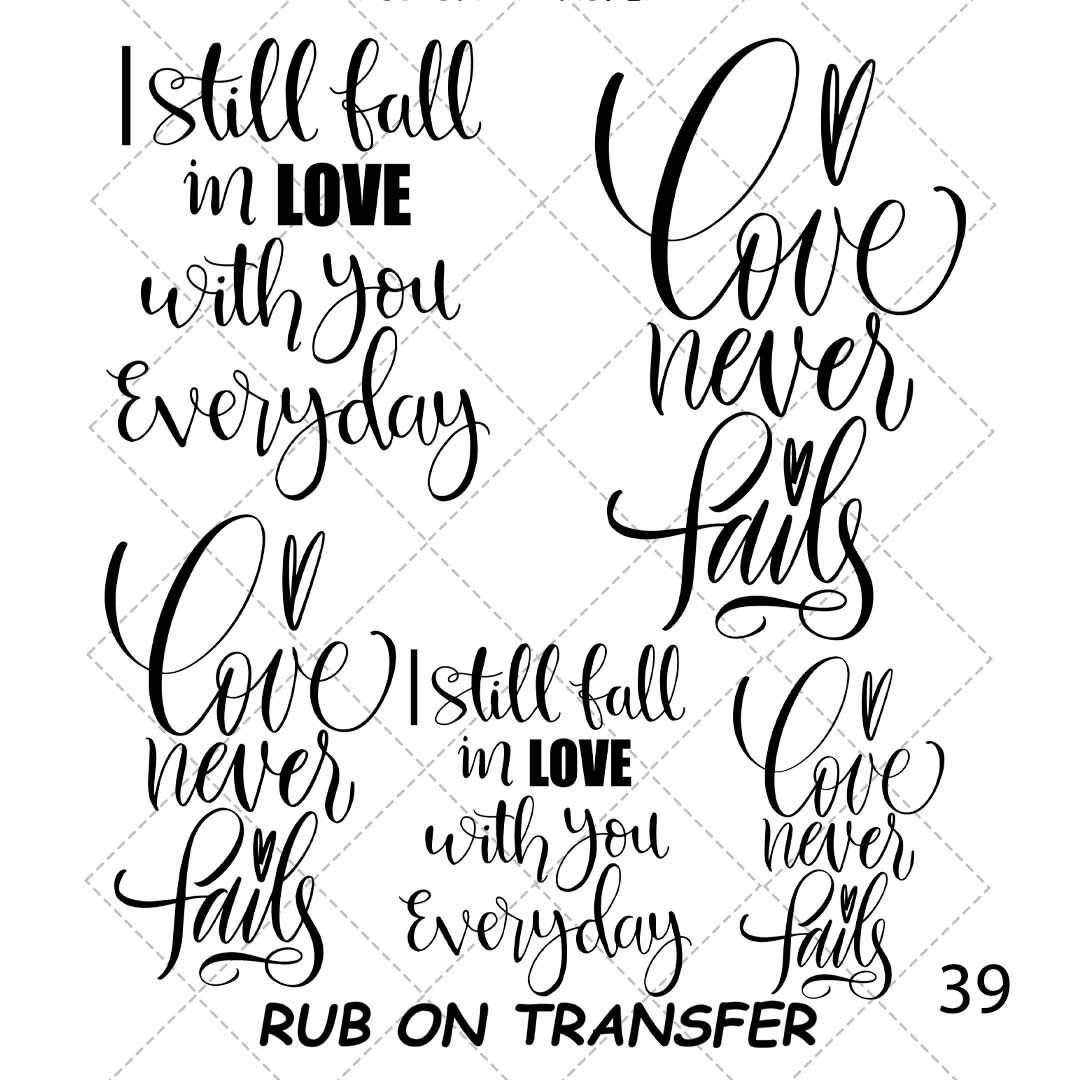 I still fall
in LOVE
with you
Everyday
Love
never
fails
Love
never
fails
I still fall
in LOVE
with you
Everyday
Love
never
fails
39
RUB ON TRANSFER